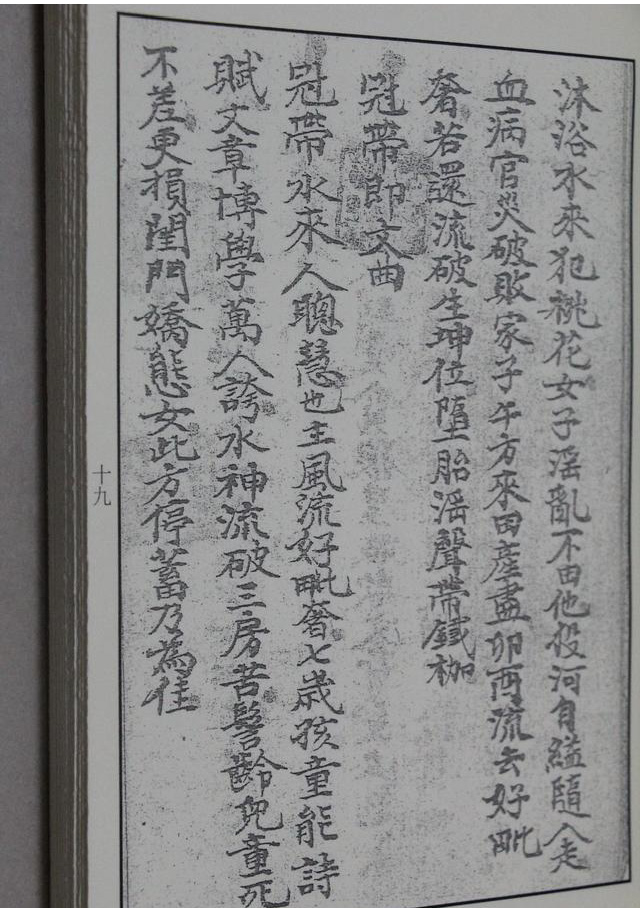 沐浴水來犯桃花女子滛亂不由他投河自縊隨人走
血病官災破敗家子午方來田產盡卯酉流去好毗
奢若還流破生坤位墮胎滛聲帶鐵枷
冠帶即文曲
冠帶水來人聰慧也主風流好毗奢七歲孩童能詩
賦文章博學萬人誇水神流破三房苦髫齡兒童死
不差更損閨門嬌態女此方停蓄乃為佳
十九